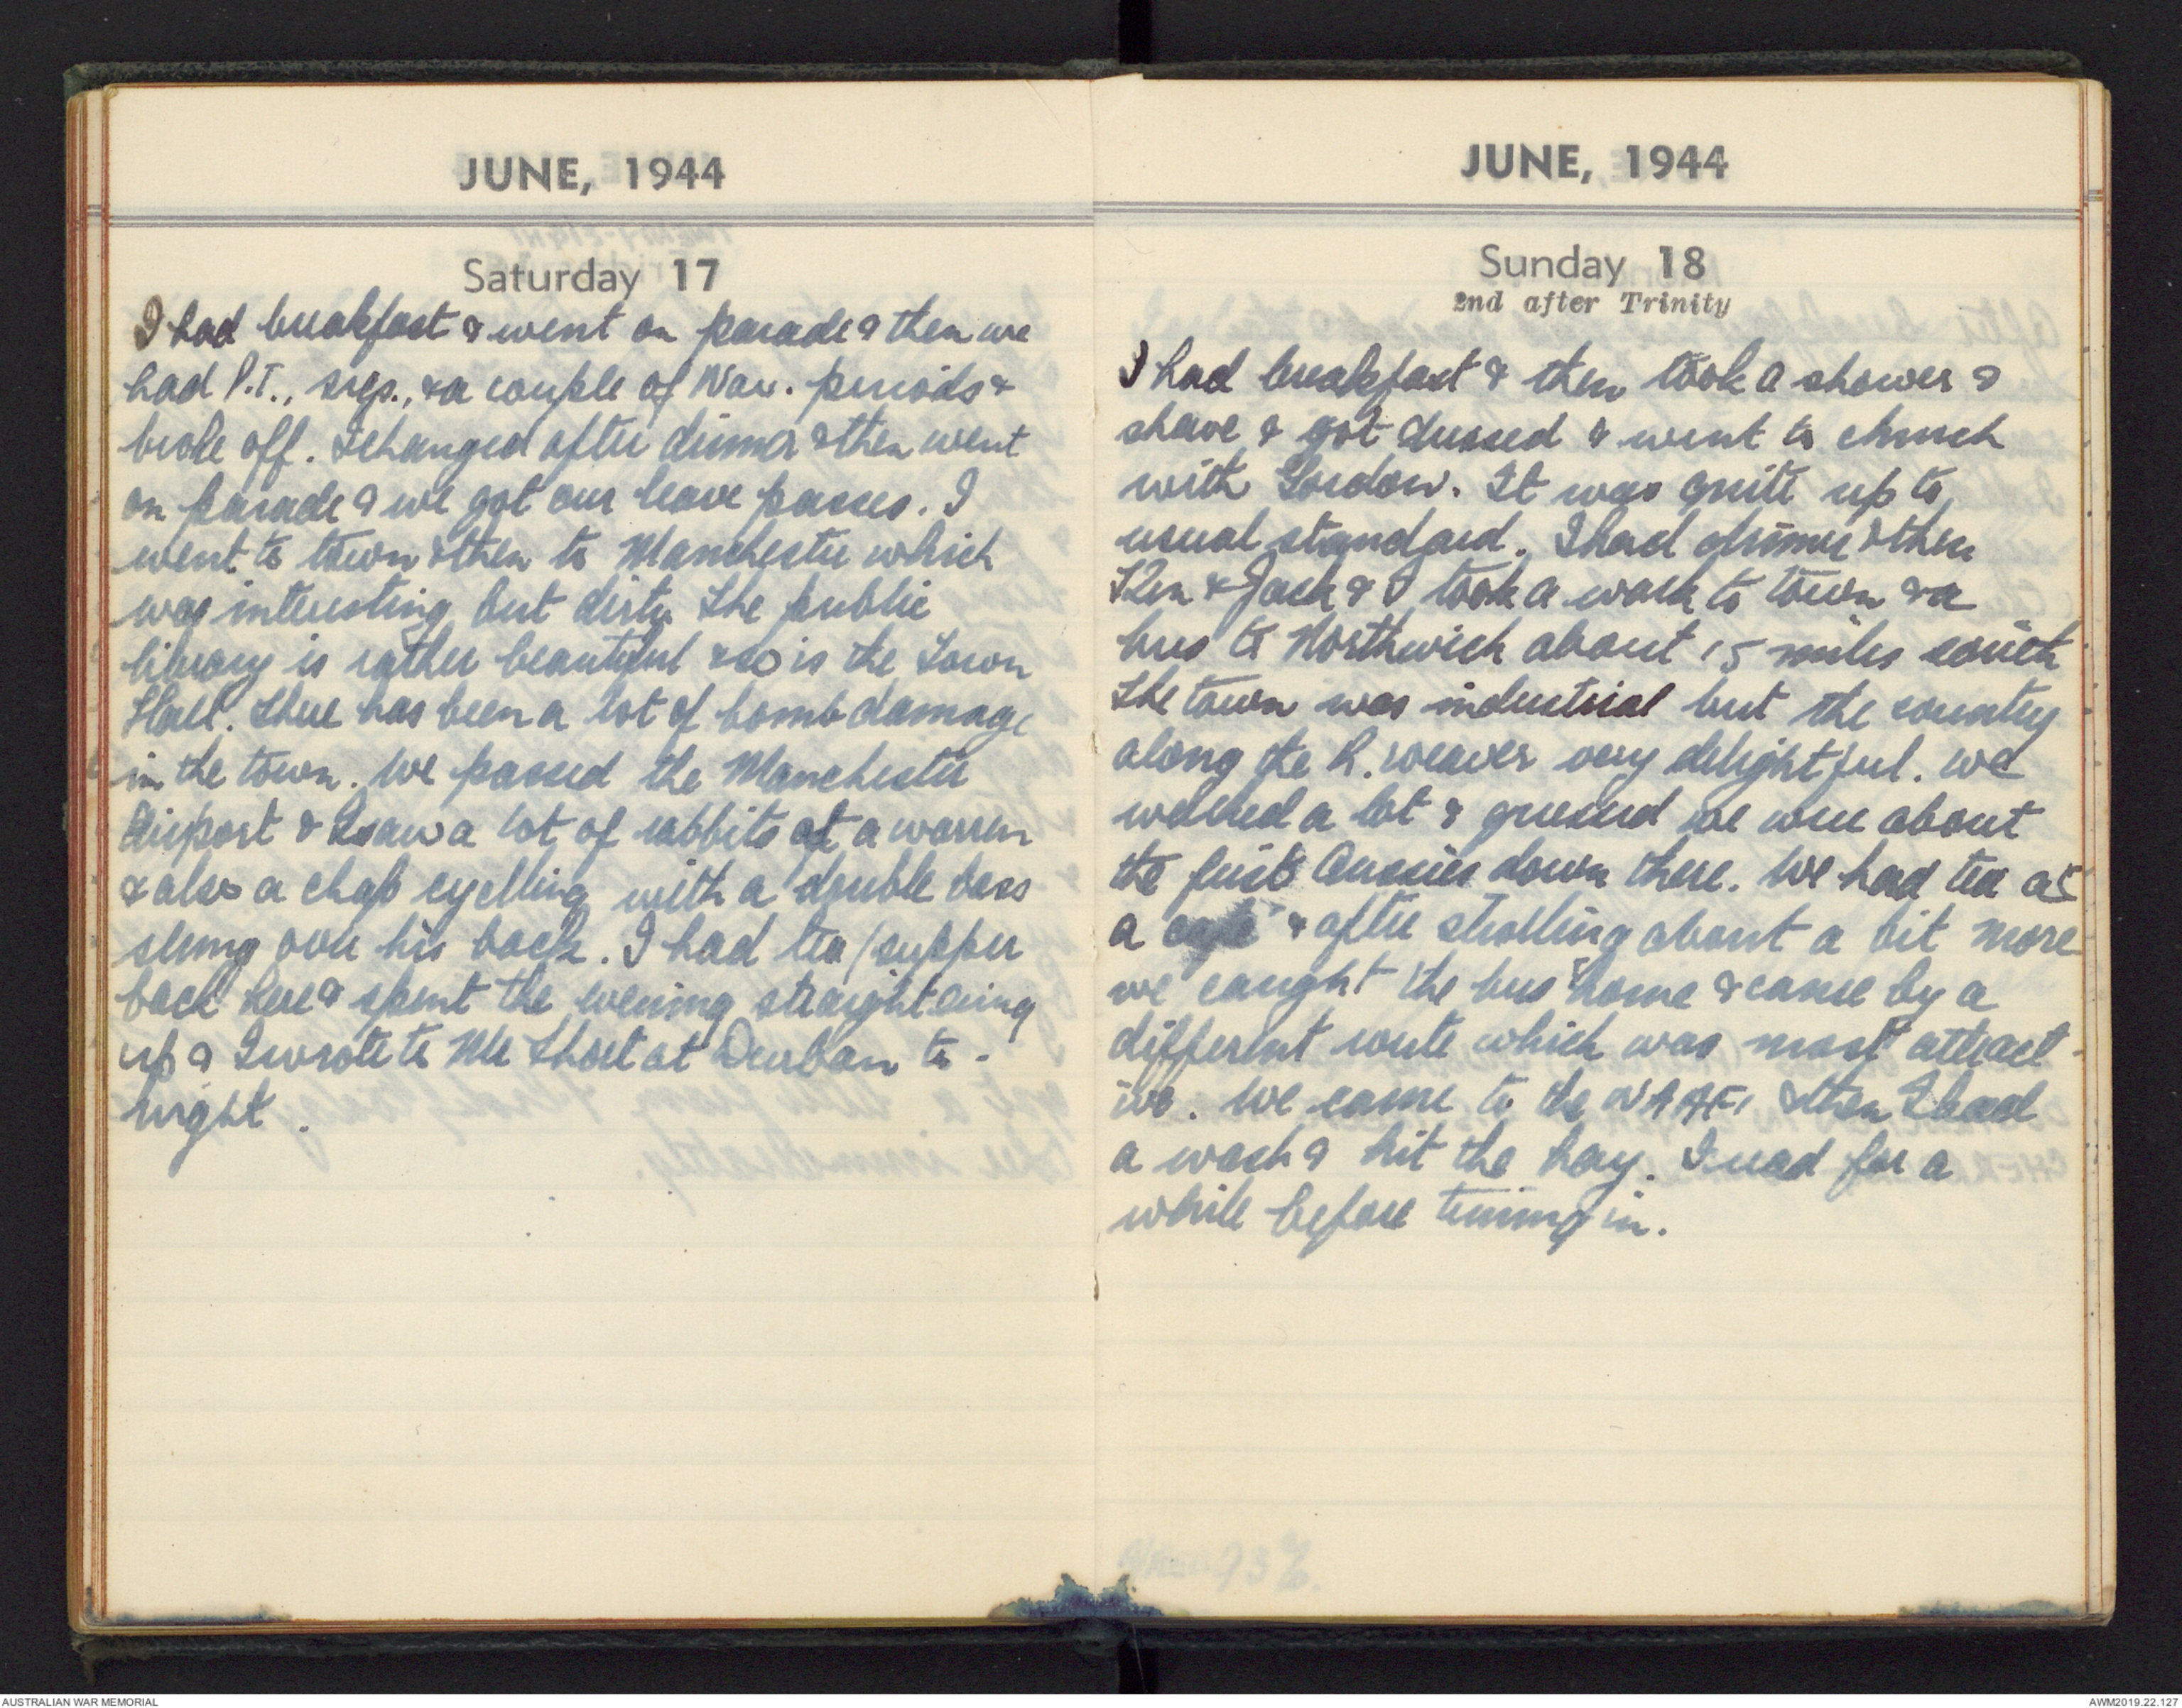 JUNE, 1944
Saturday 17
I had breakfast & went on parade & then we
had P.T., sigs., & a couple of Nav. periods &
broke off. I changed after dinner & then went
on parade & we got our leave passes. I
went to town & then to Manchester which
was interesting but dirty. The public
library is rather beautiful & so is the Town
Hall. There has been a lot of bomb damage
in the town. We passed the Manchester
Airport & I saw a lot of rabbits at a warren
& also a chap cyclling with a double bass
slung over his back. I had tea/supper
back here & spent the evening straightening
up & I wrote to Mr Short at Durban to-
night.
JUNE, 1944
Sunday 18
2nd after Trinity
I had breakfast & then took a shower &
shave & got dressed & went to church
with Gordon. It was quite up to
usual standard. I had dinner & then
Ken & Jack & I took a walk to town & a
bus to Northwich about 15 miles south
The town was industrial but the country
along the R. Weaver very delightful. We
walked a lot & guessed we were about
the first Aussies down there. We had tea at
a cafe & after strolling about a bit more
we caught the bus home & came by a
different route which was most attract-
ive. We came to the NAAFI & then I had
a wash & hit the hay. I read for a
while before turning in.
AUSTRALIAN WAR MEMORIAL
AWM2019.22.127